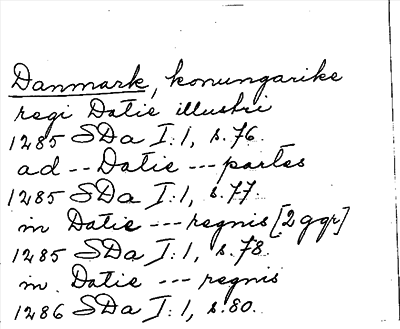 Danmark, konungarike
regi Datie illustri
1285 SDa I:1, s.76.
ad -- Datie --- partes
1285 SDa I:1, s.77.
in Datie --- regnis [2 ggr]
1285 SDa I:1, s.78.
in. Datie --- regnis
1286 SDa I:1, s.80.